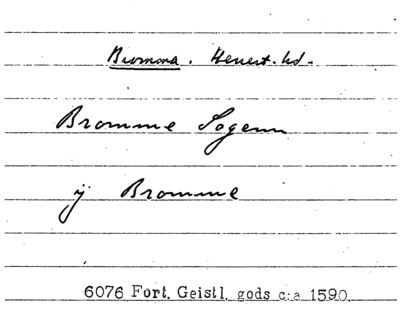 Bromma. Henert. hd.
Bromme Sogenn
ij Bromme
6076 Fort. Geistl. gods c:a 1590.